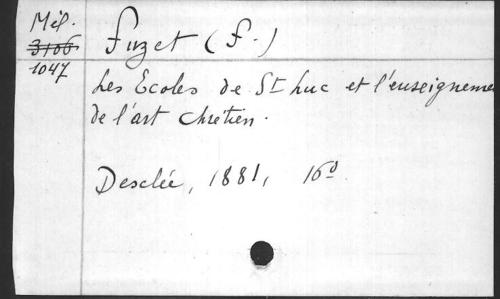 Mél.
3106
1047
Fuzet (F.)
Les Ecoles de St Luc et l'enseigneme
de l'art chrétien.
Desclée, 1881, 16º